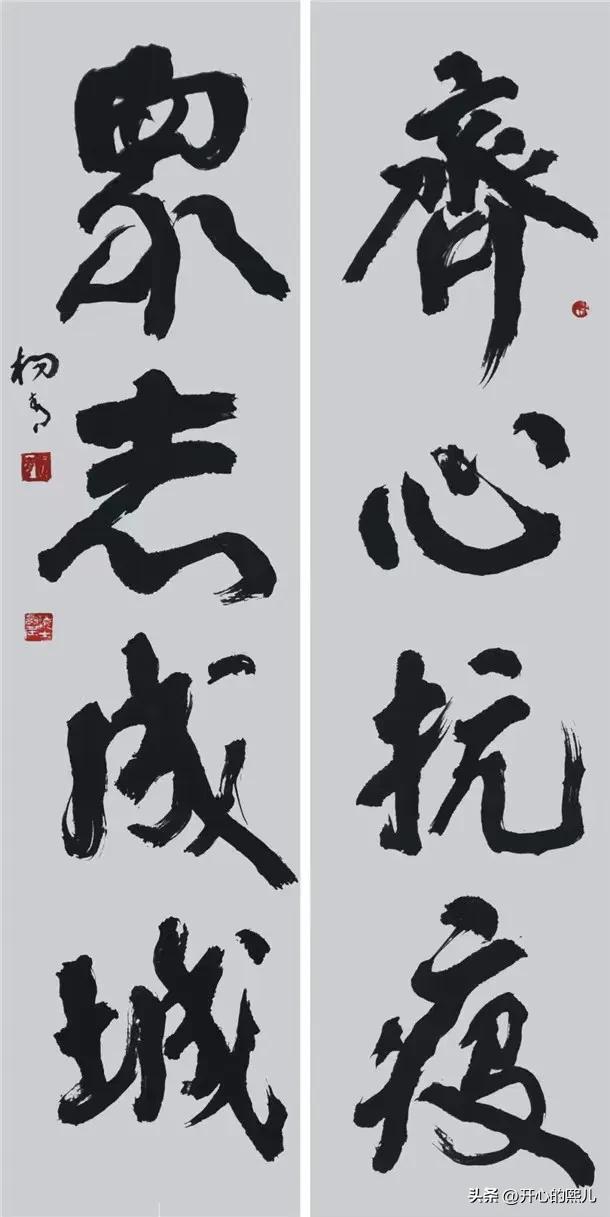 齊心抗疫
眾志成城
头条 @开心的熙儿